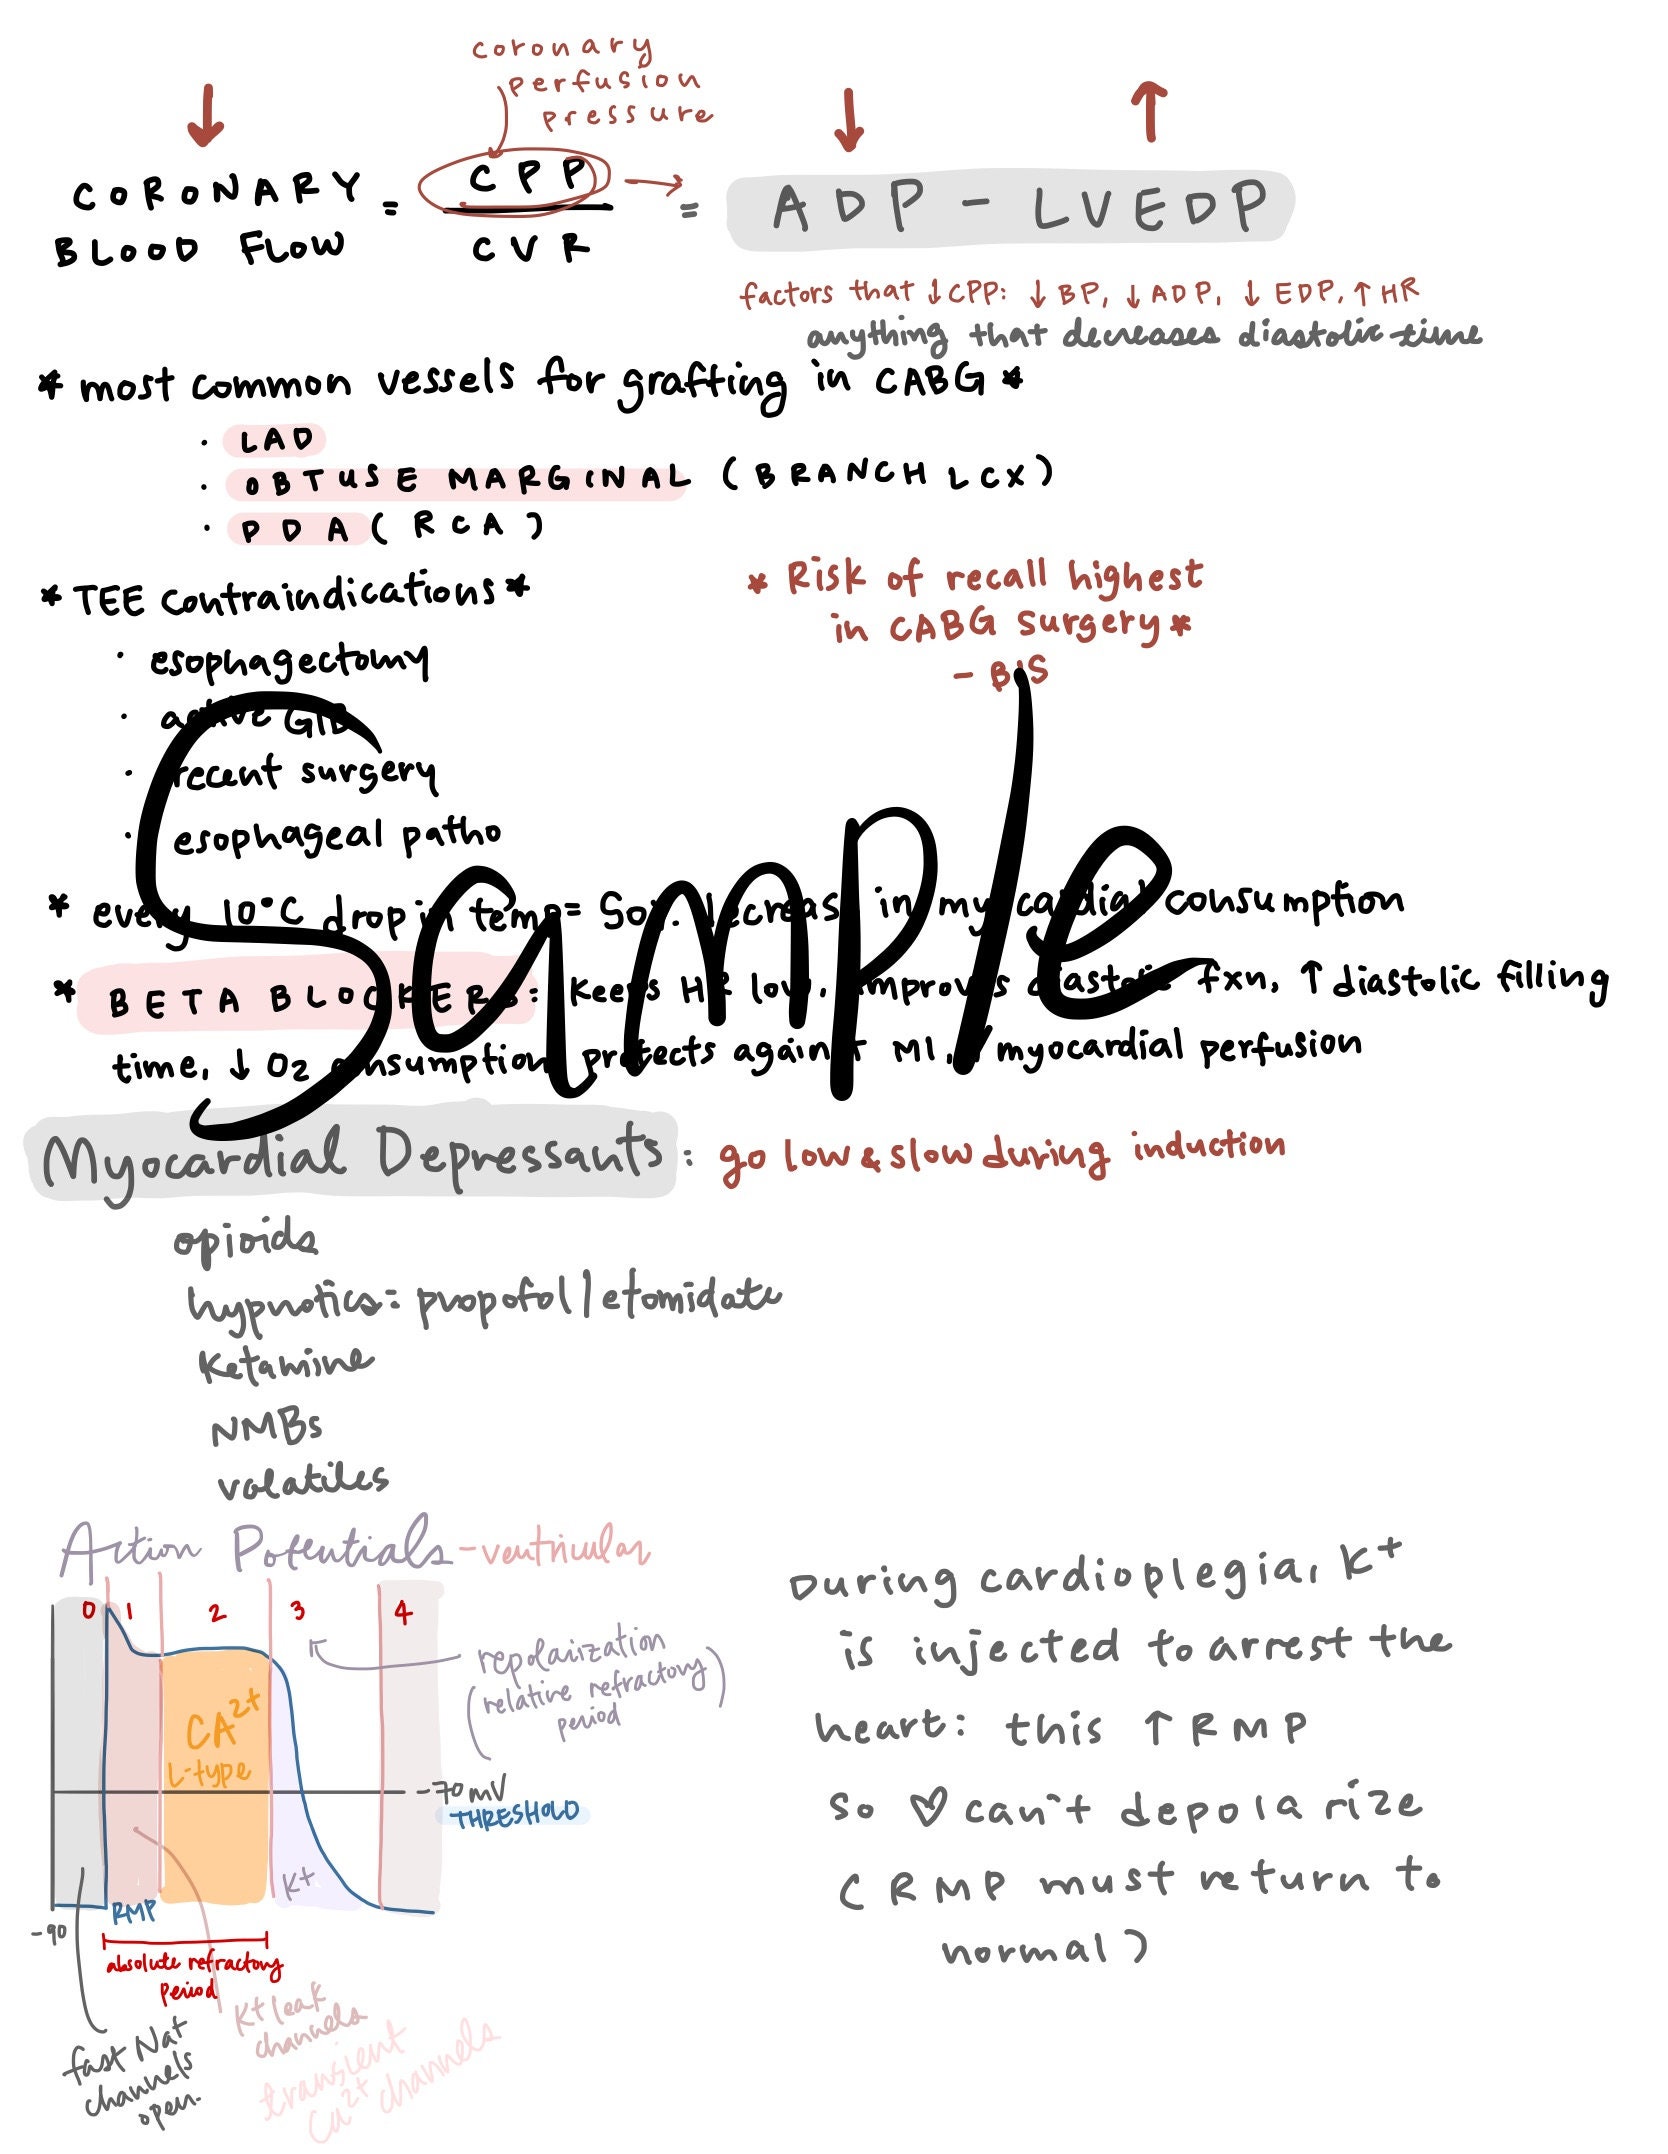 coronary
perfusion
pressure
↓ ↓ ↑
CORONARY BLOOD FLOW = CPP / CVR → = ADP - LVEDP
factors that ↓ CPP: ↓ BP, ↓ ADP, ↓ EDP, ↑ HR
anything that decreases diastolic time
* most common vessels for grafting in CABG *
· LAD
· OBTUSE MARGINAL (BRANCH LCX)
· PDA (RCA)
* TEE contraindications *
· esophagectomy
· active GIB
· recent surgery
· esophageal patho
* Risk of recall highest
in CABG surgery *
- BIS
Sample
* every 10°C drop in temp = decrease in myocardial consumption
* BETA BLOCKERS: keeps HR low, improves diastolic fxn, ↑ diastolic filling
time, ↓ O2 consumption, protects against MI, myocardial perfusion
Myocardial Depressants: go low & slow during induction
opioids
hypnotics: propofol/etomidate
Ketamine
NMBs
volatiles
Action Potentials - ventricular
0 1 2 3 4
repolarization
(relative refractory
period)
CA2+
L-type
-70mV
THRESHOLD
K+
RMP
-90
absolute refractory
period
K+ leak
channels
transient
Ca2+ channels
fast Na+
channels
open.
During cardioplegia, K+
is injected to arrest the
heart: this ↑ RMP
so ♡ can't depolarize
(RMP must return to
normal)